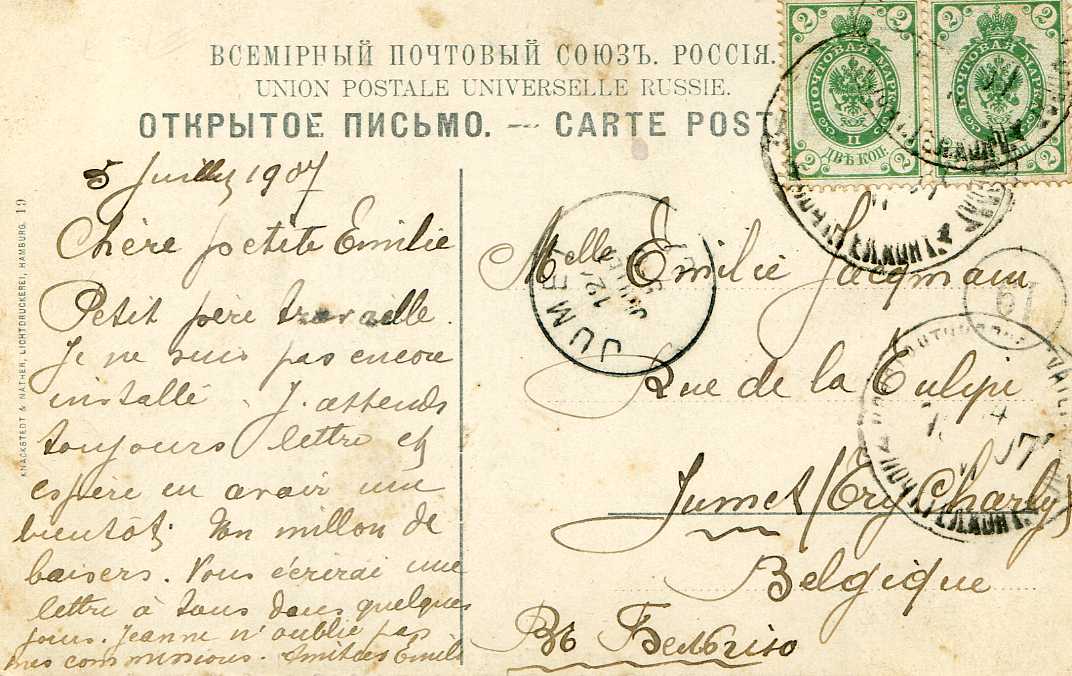 ВСЕМІРНЫЙ ПОЧТОВЫЙ СОЮЗЪ. РОССІЯ.
UNION POSTALE UNIVERSELLE RUSSIE.
ОТКРЫТОЕ ПИСЬМО. — CARTE POST
2 2
ПОЧТОВАЯ МАРКА
II
ДВѢ КОП.
2 2
2 2
ПОЧТОВАЯ МАРКА
2 2
5 Juillet 1907
Chère petite Emilie
Petit père travaille.
Je ne suis pas encore
installé. J'attends
toujours lettre et
espère en avoir une
bientôt. Un millon de
baisers. Vous écrirai une
lettre à tous dans quelques
jours. Jeanne n'oublie pas
mes commissions. Amitiés Emile
Melle Emilie Jacqmain
Rue de la Tulipe
Jumet (Try Charly)
Belgique
Въ Бельгію
JUME
12
61
07
KNACKSTEDT & NÄTHER, LICHTDRUCKEREI, HAMBURG. 19